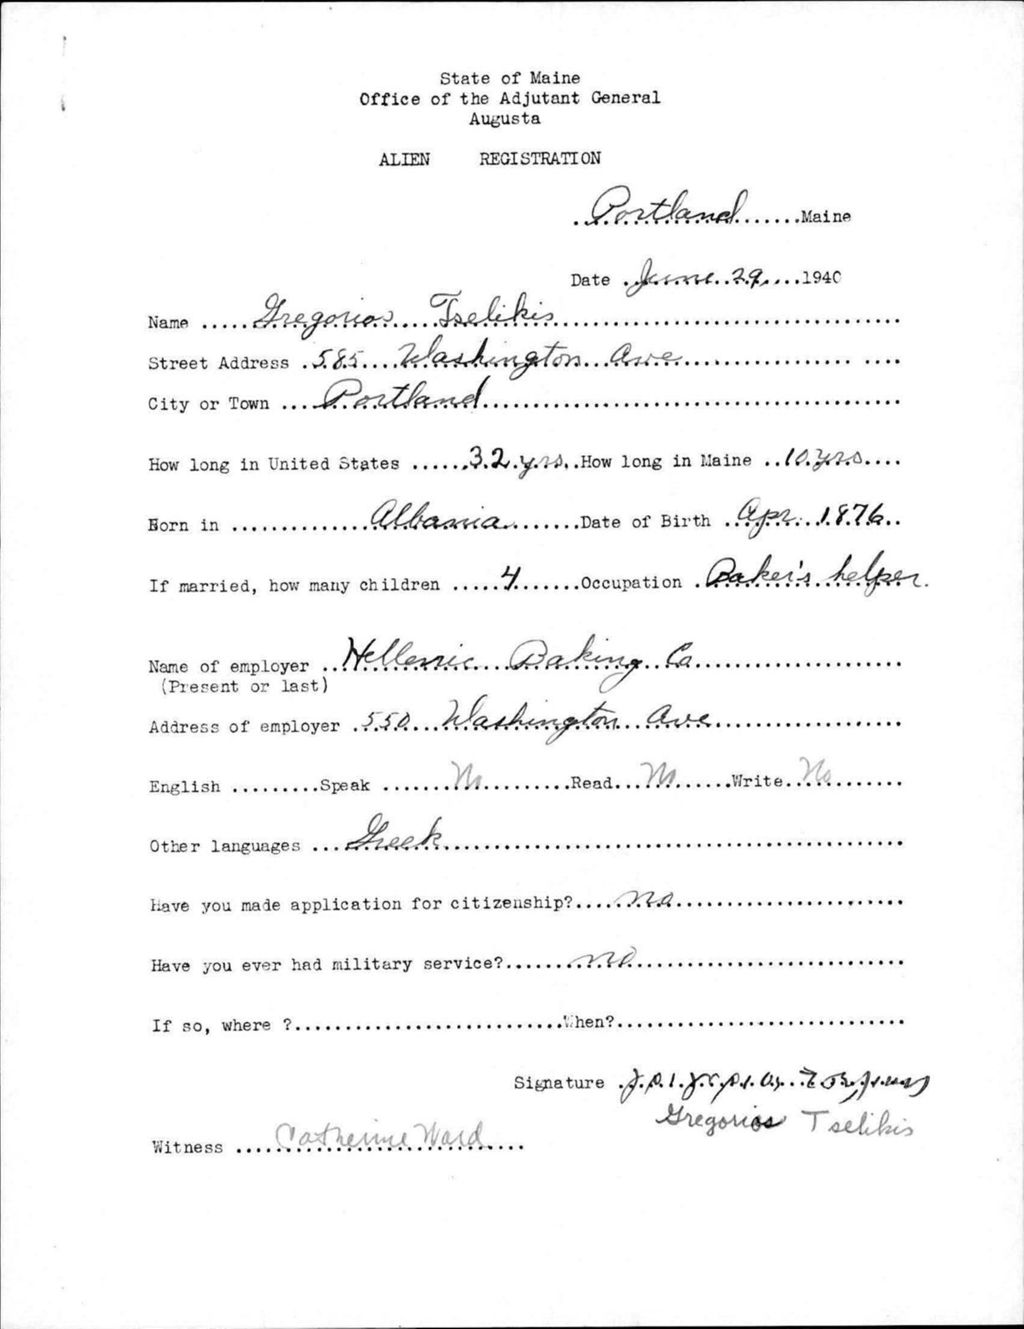 State of Maine
Office of the Adjutant General
Augusta
ALIEN REGISTRATION
Portland Maine
Date June 29 1940
Name Gregorios Tselikis
Street Address 585 Washington Ave
City or Town Portland
How long in United States 32 yrs. How long in Maine 10 yrs
Born in Albania Date of Birth Apr. 1876
If married, how many children 4 Occupation Baker's helper
Name of employer Hellenic Baking Co
(Present or last)
Address of employer 550 Washington Ave
English Speak No Read No Write No
Other languages Greek
Have you made application for citizenship? no
Have you ever had military service? no
If so, where ? When?
Signature
Gregorios Tselikis
Witness Catherine Ward